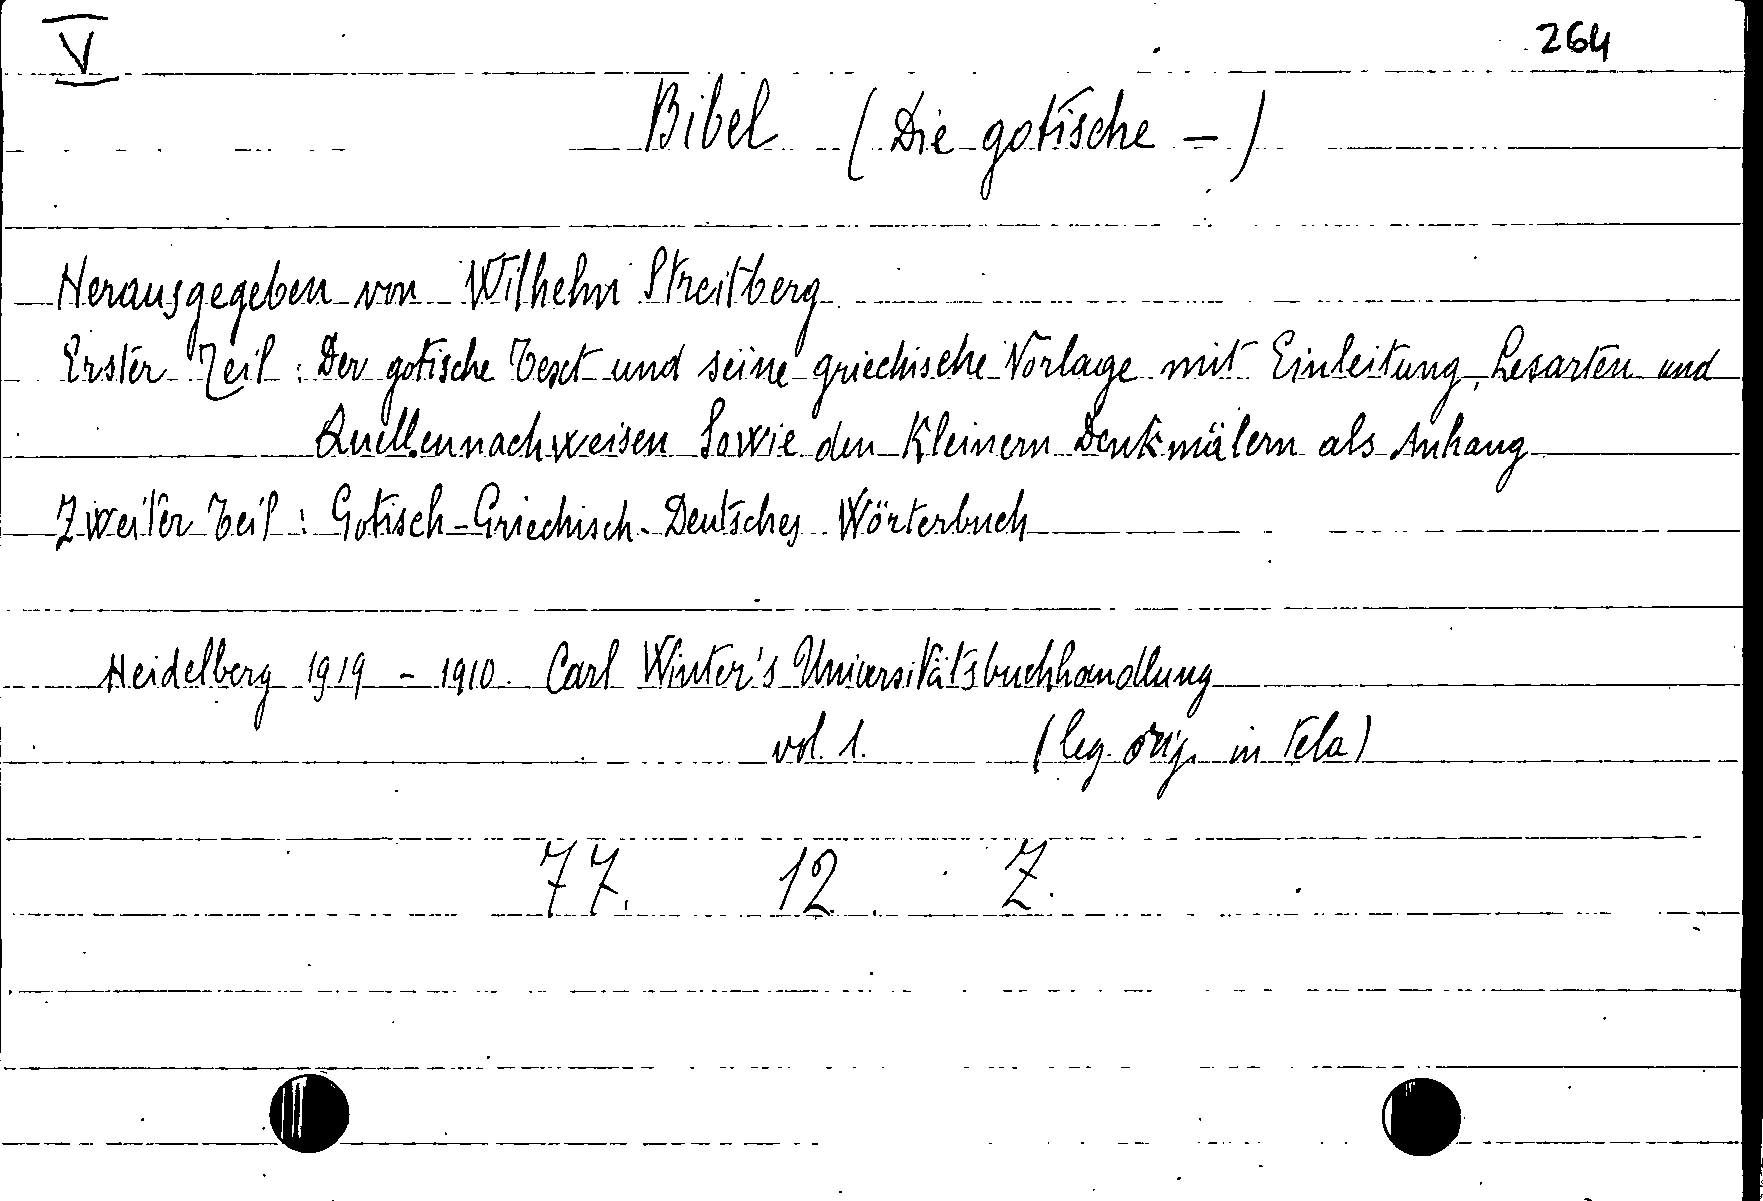 V 264
Bibel (Die gotische -)
Herausgegeben von Wilhelm Streitberg
Erster Teil: Der gotische Text und seine griechische Vorlage mit Einleitung, Lesarten und
Quellennachweisen sowie den Kleinern Denkmälern als Anhang
Zweiter Teil: Gotisch-Griechisch-Deutsches Wörterbuch
Heidelberg 1919 - 1910. Carl Winter's Universitätsbuchhandlung
vol. 1. (leg. orig. in tela)
77. 12. Z.